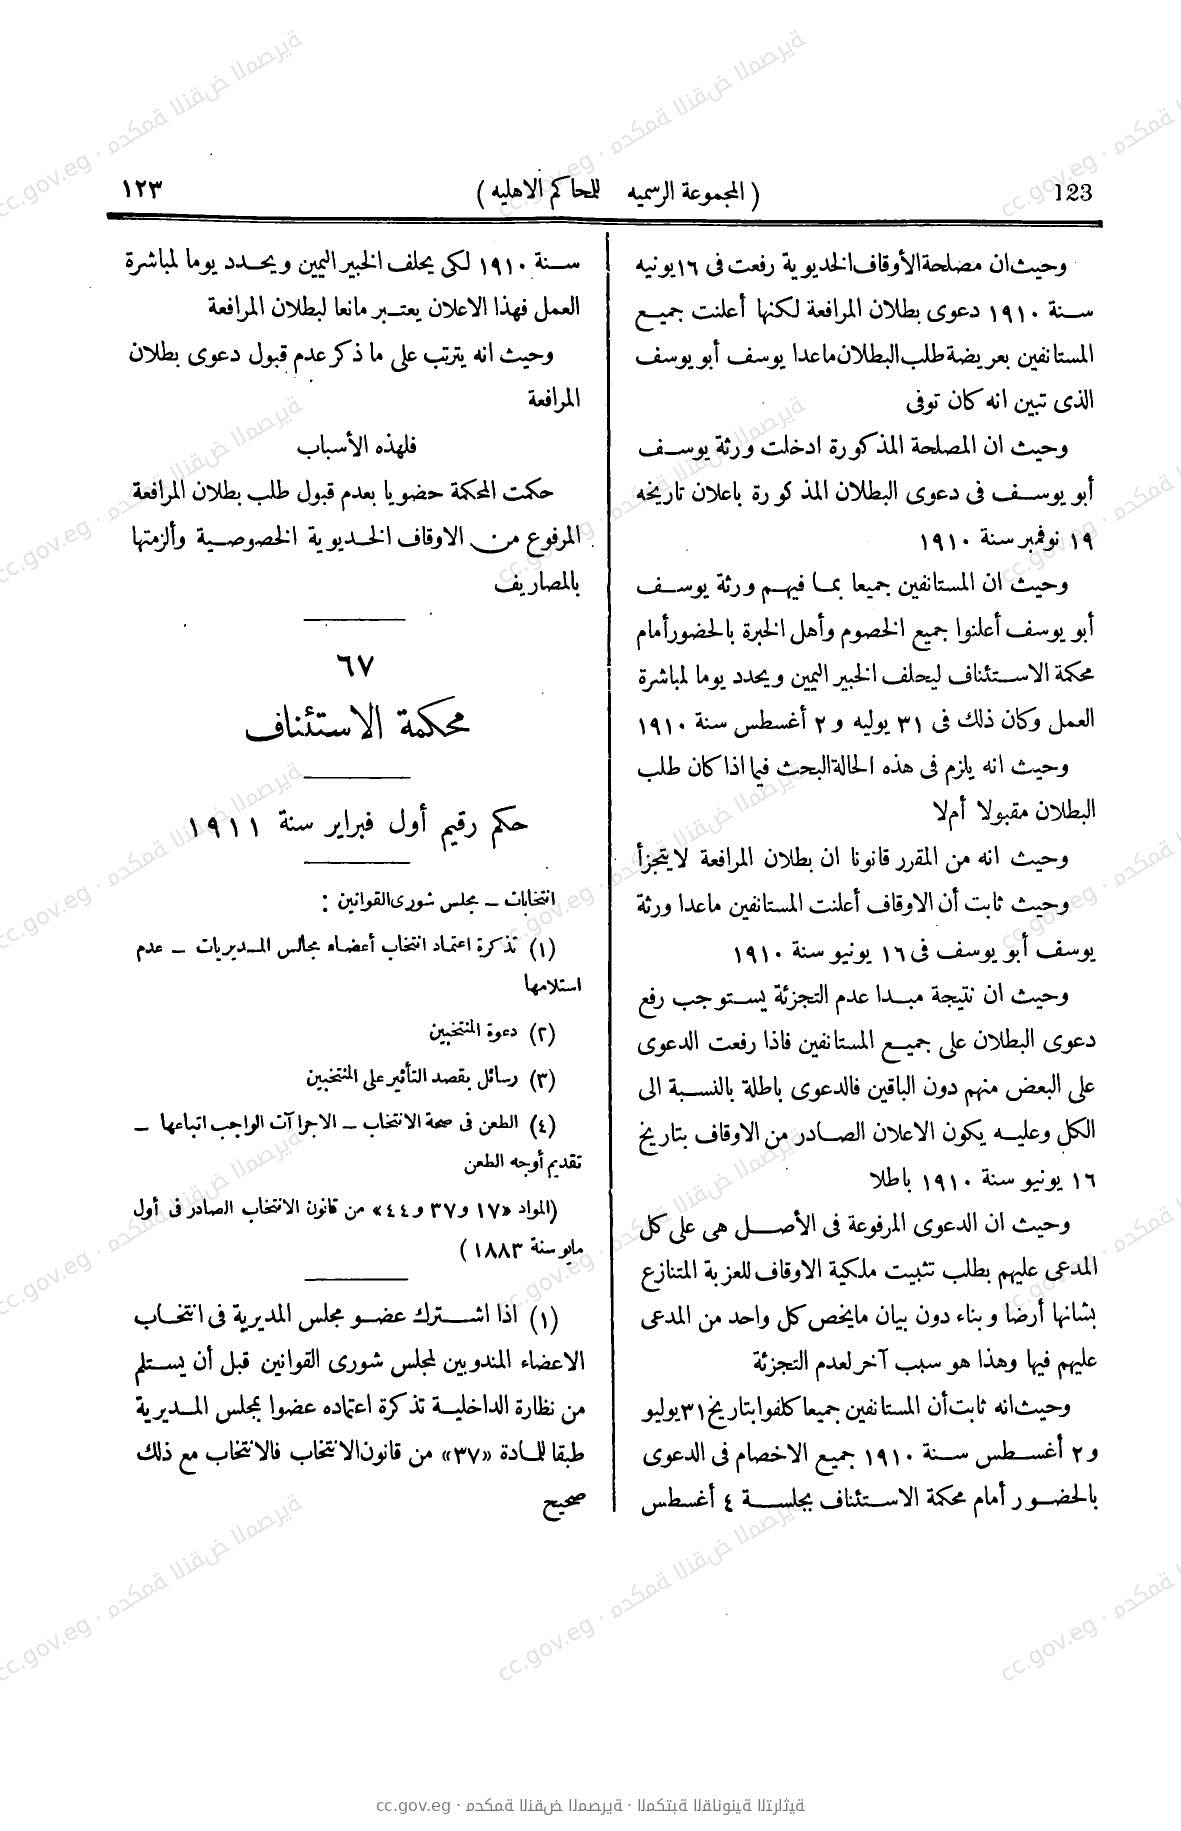 123
( المجموعة الرسميه للمحاكم الاهليه )
١٢٣
وحيث ان مصلحة الأوقاف الخديوية رفعت فى ١٦ يونيه
سنة ١٩١٠ دعوى بطلان المرافعة لكنها أعلنت جميع
المستانفين بعريضة طلب البطلان ماعدا يوسف أبو يوسف
الذى تبين انه كان توفى
وحيث ان المصلحة المذكورة ادخلت ورثة يوسف
أبو يوسف فى دعوى البطلان المذكورة باعلان تاريخه
١٩ نوفمبر سنة ١٩١٠
وحيث ان المستانفين جميعا بما فيهم ورثة يوسف
أبو يوسف أعلنوا جميع الخصوم وأهل الخبرة بالحضور أمام
محكمة الاستئناف ليحلف الخبير اليمين ويحدد يوما لمباشرة
العمل وكان ذلك فى ٣١ يوليه و ٢ أغسطس سنة ١٩١٠
وحيث انه يلزم فى هذه الحالة البحث فيما اذا كان طلب
البطلان مقبولا أم لا
وحيث انه من المقرر قانونا ان بطلان المرافعة لايتجزأ
وحيث ثابت أن الاوقاف أعلنت المستانفين ماعدا ورثة
يوسف أبو يوسف فى ١٦ يونيو سنة ١٩١٠
وحيث ان نتيجة مبدا عدم التجزئة يستوجب رفع
دعوى البطلان على جميع المستانفين فاذا رفعت الدعوى
على البعض منهم دون الباقين فالدعوى باطلة بالنسبة الى
الكل وعليه يكون الاعلان الصادر من الاوقاف بتاريخ
١٦ يونيو سنة ١٩١٠ باطلا
وحيث ان الدعوى المرفوعة فى الأصل هى على كل
المدعى عليهم بطلب تثبيت ملكية الاوقاف للعزبة المتنازع
بشانها أرضا وبناء دون بيان مايخص كل واحد من المدعى
عليهم فيها وهذا هو سبب آخر لعدم التجزئة
وحيث انه ثابت أن المستانفين جميعا كلفوا بتاريخ ٣١ يوليو
و ٢ أغسطس سنة ١٩١٠ جميع الاخصام فى الدعوى
بالحضور أمام محكمة الاستئناف بجلسة ٤ أغسطس
سنة ١٩١٠ لكى يحلف الخبير اليمين ويحدد يوما لمباشرة
العمل فهذا الاعلان يعتبر مانعا لبطلان المرافعة
وحيث انه يترتب على ما ذكر عدم قبول دعوى بطلان
المرافعة
فلهذه الأسباب
حكمت المحكمة حضويا بعدم قبول طلب بطلان المرافعة
المرفوع من الاوقاف الخديوية الخصوصية وألزمتها
بالمصاريف
٦٧
محكمة الاستئناف
حكم رقيم أول فبراير سنة ١٩١١
انتخابات – مجلس شورى القوانين :
(١) تذكرة اعتماد انتخاب أعضاء مجالس المديريات – عدم
استلامها
(٢) دعوة المنتخبين
(٣) رسائل بقصد التأثير على المنتخبين
(٤) الطعن فى صحة الانتخاب – الاجراآت الواجب اتباعها –
تقديم أوجه الطعن
(المواد «١٧ و ٣٧ و ٤٤» من قانون الانتخاب الصادر فى أول
مايو سنة ١٨٨٣ )
(١) اذا اشترك عضو مجلس المديرية فى انتخاب
الاعضاء المندوبين لمجلس شورى القوانين قبل أن يستلم
من نظارة الداخلية تذكرة اعتماده عضوا بمجلس المديرية
طبقا للمادة «٣٧» من قانون الانتخاب فالانتخاب مع ذلك
صحيح
cc.gov.eg · محكمة النقض المصرية · المكتبة القانونية التراثية